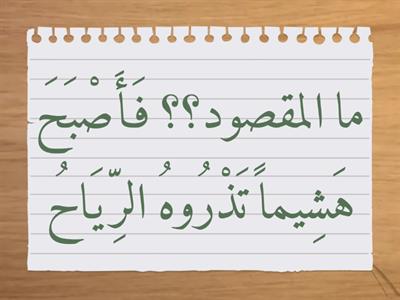 ما المقصود؟؟ فَأَصْبَحَ
هَشِيماً تَذْرُوهُ الرِّيَاحُ